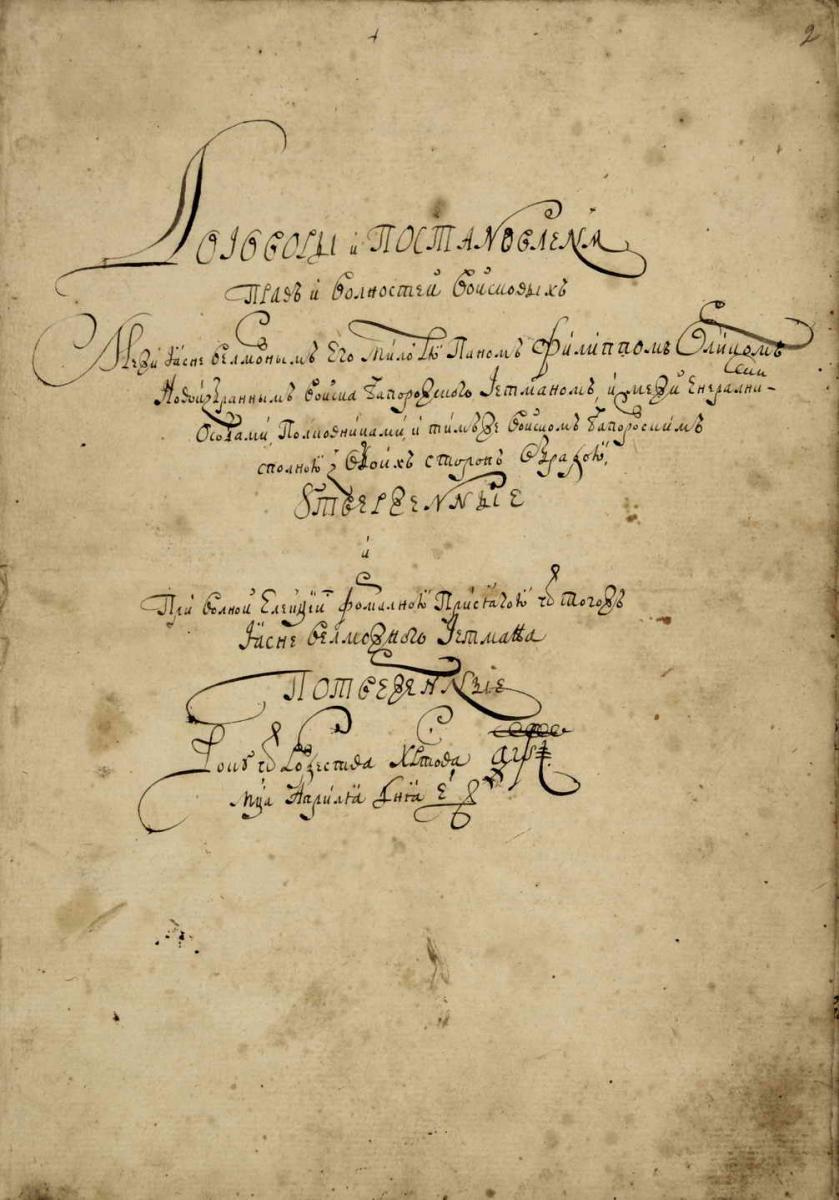 2
Договоры и Постановленя
Правъ и волностей войсковыхъ
Межи Ясне велможнымъ Его Милостю Паномъ Филиппомъ Орликомъ
Новоизбраннымъ войска Запорожского Гетманомъ, и межи Енералними
Особами Полковниками, и тимже войскомъ Запорожскимъ
сполною з обоихъ сторонъ обрадою,
Утвержденные
и
При волной Елекции формалною Присягою ѿ тогожъ
Ясне велможного Гетмана
Потвержденные
Року ѿ Рожества Хртова ҂аѱі
Мца Априля Дня е